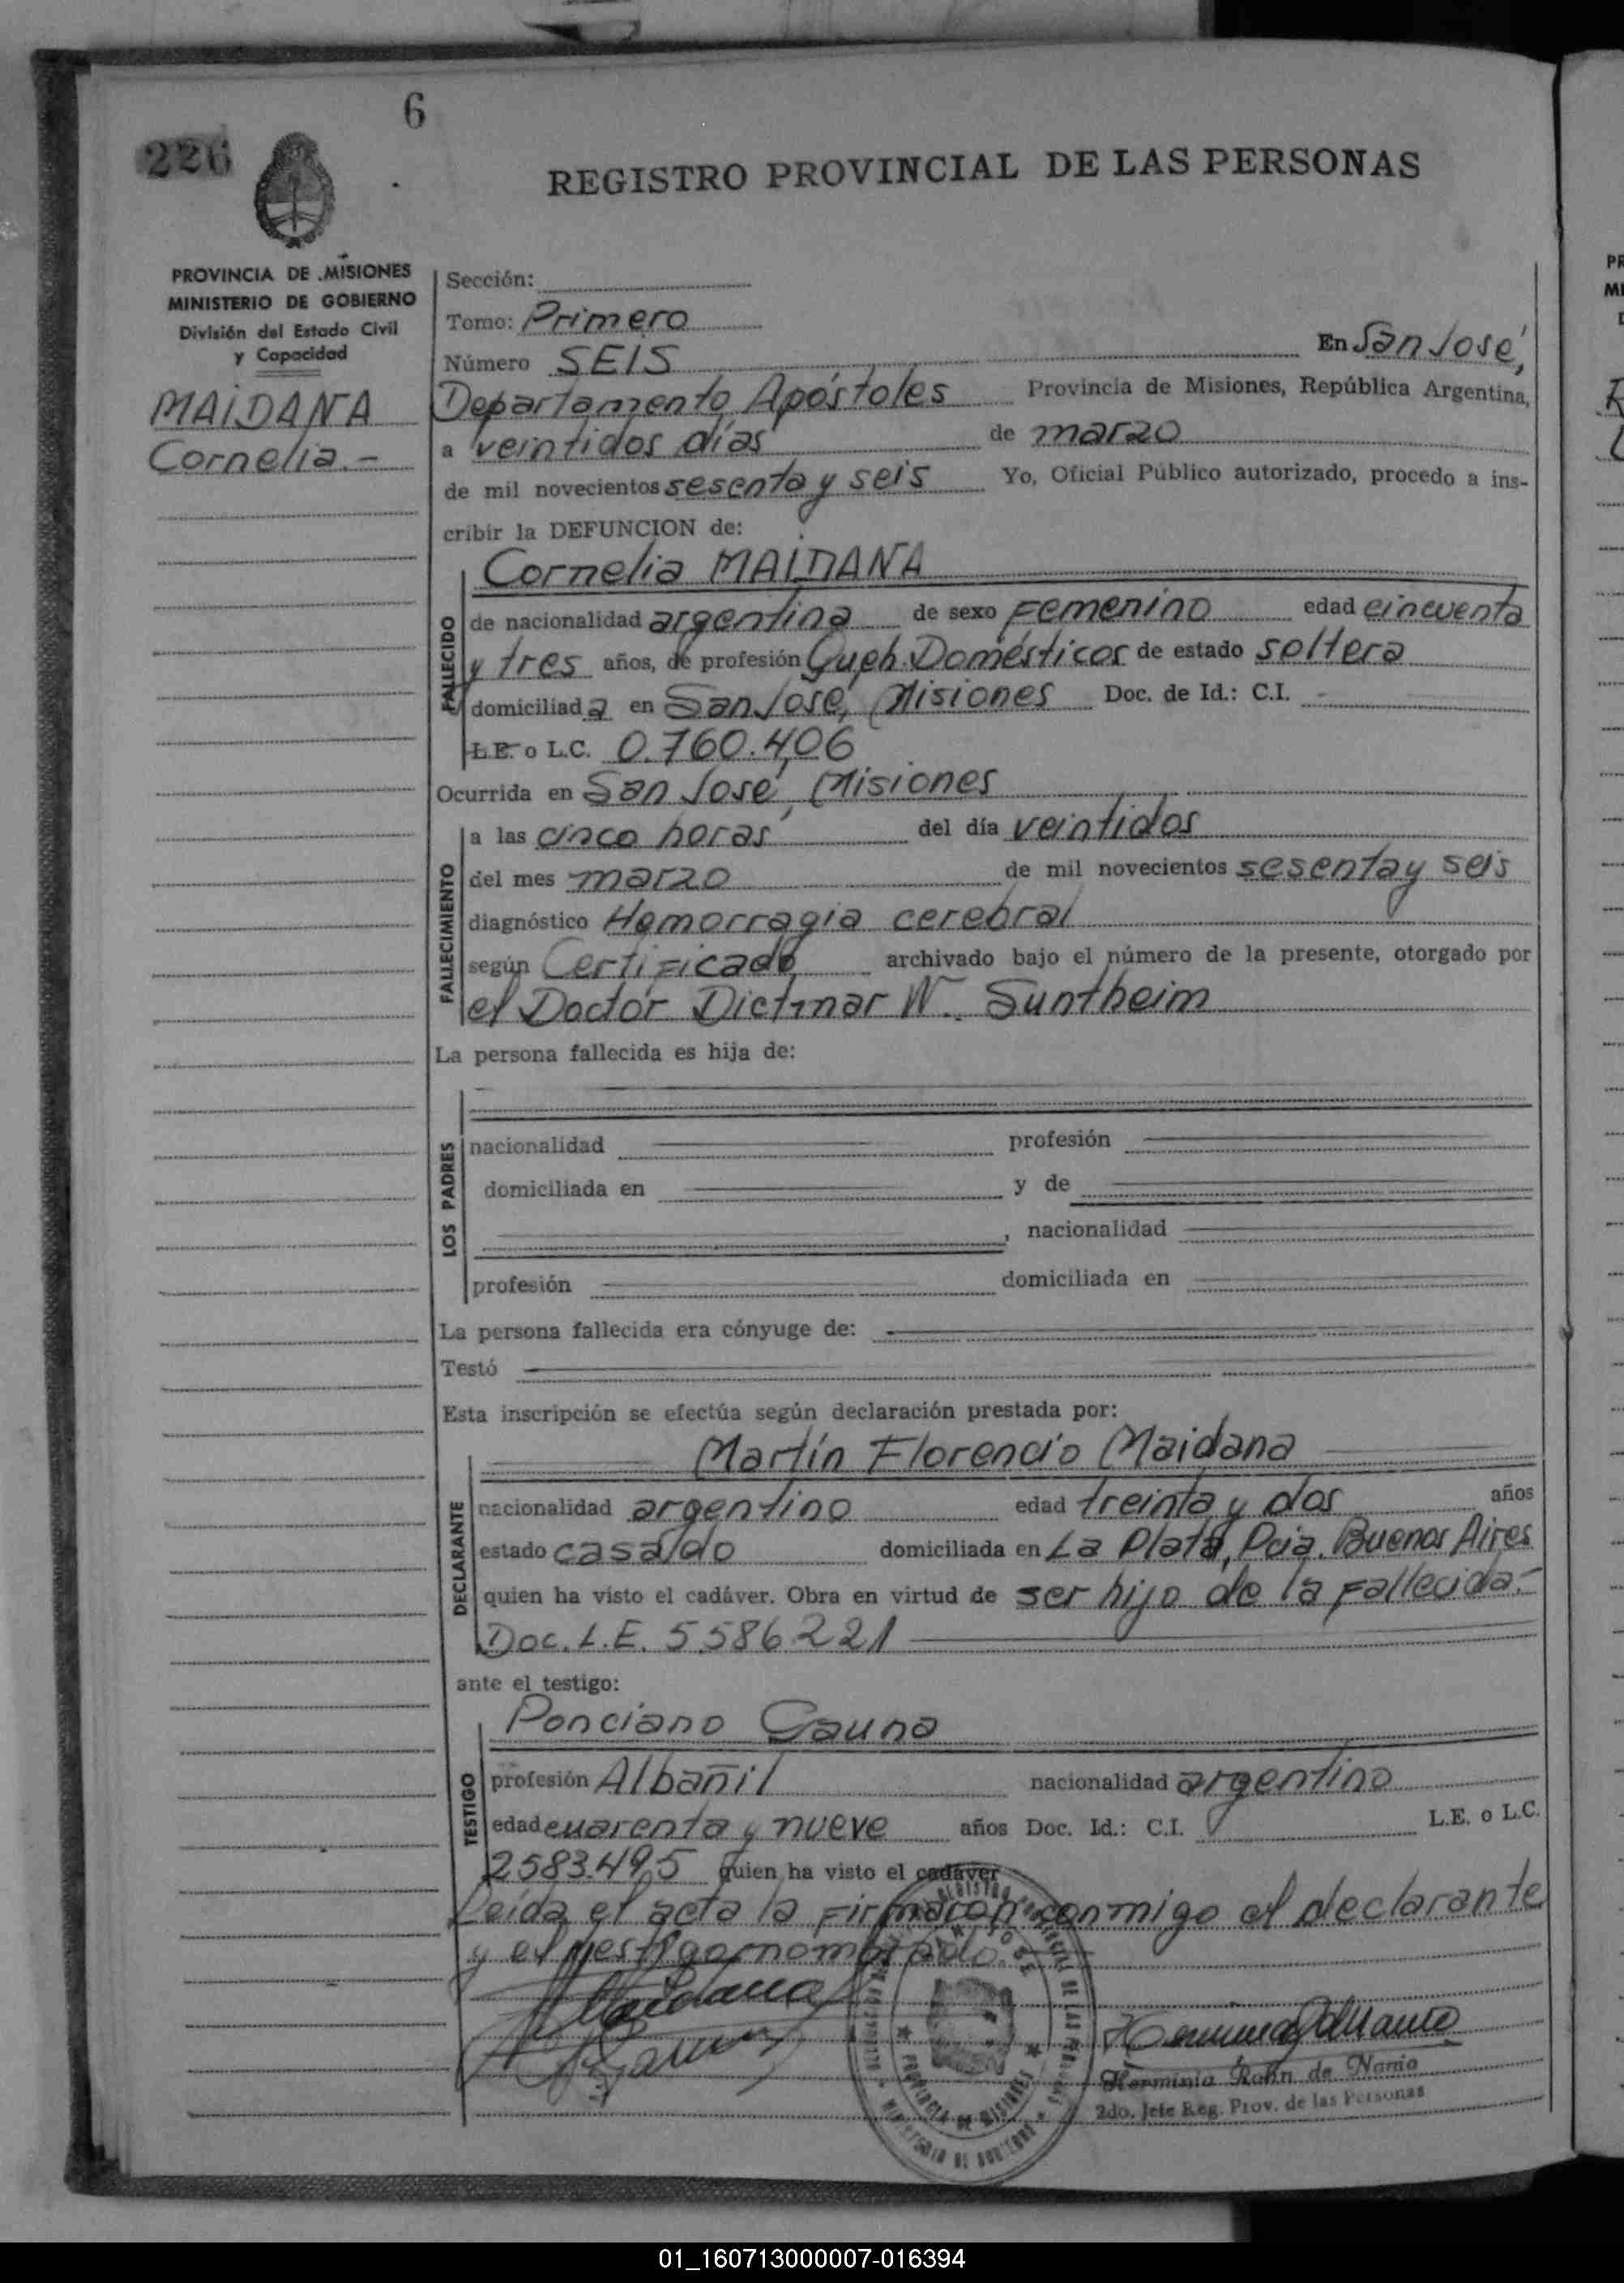 6
226
REGISTRO PROVINCIAL DE LAS PERSONAS
PROVINCIA DE MISIONES
MINISTERIO DE GOBIERNO
División del Estado Civil
y Capacidad
MAIDANA
Cornelia.-
Sección:
Tomo: Primero
Número SEIS En San José,
Departamento Apóstoles Provincia de Misiones, República Argentina,
a veintidos días de marzo
de mil novecientos sesenta y seis Yo, Oficial Público autorizado, procedo a ins-
cribir la DEFUNCION de:
Cornelia MAIDANA
FALLECIDO
de nacionalidad argentina de sexo Femenino edad cincuenta
y tres años, de profesión Queh. Domésticos de estado soltera
domiciliada en San José, Misiones Doc. de Id.: C.I. -
L.E. o L.C. 0.760.406
Ocurrida en San José, Misiones
FALLECIMIENTO
a las cinco horas del día veintidos
del mes marzo de mil novecientos sesenta y seis
diagnóstico Hemorragia cerebral
según Certificado archivado bajo el número de la presente, otorgado por
el Doctor Dietmar W. Suntheim
La persona fallecida es hija de:
LOS PADRES
nacionalidad profesión
domiciliada en y de
, nacionalidad
profesión domiciliada en
La persona fallecida era cónyuge de:
Testó
Esta inscripción se efectúa según declaración prestada por:
Martín Florencio Maidana
DECLARANTE
nacionalidad argentino edad treinta y dos años
estado casado domiciliada en La Plata, Pcia. Buenos Aires
quien ha visto el cadáver. Obra en virtud de ser hijo de la fallecida.-
Doc. L.E. 5586221
ante el testigo:
Ponciano Gauna
TESTIGO
profesión Albañil nacionalidad argentino
edad cuarenta y nueve años Doc. Id.: C.I. L.E. o L.C.
2583.495 quien ha visto el cadáver
Leída el acta la firmaron conmigo el declarante
y el testigo nombrado.
Maidana
Herminia Rohn de Nanio
2do. Jefe Reg. Prov. de las Personas
PROVINCIA DE MISIONES
MINISTERIO DE GOBIERNO
01_160713000007-016394